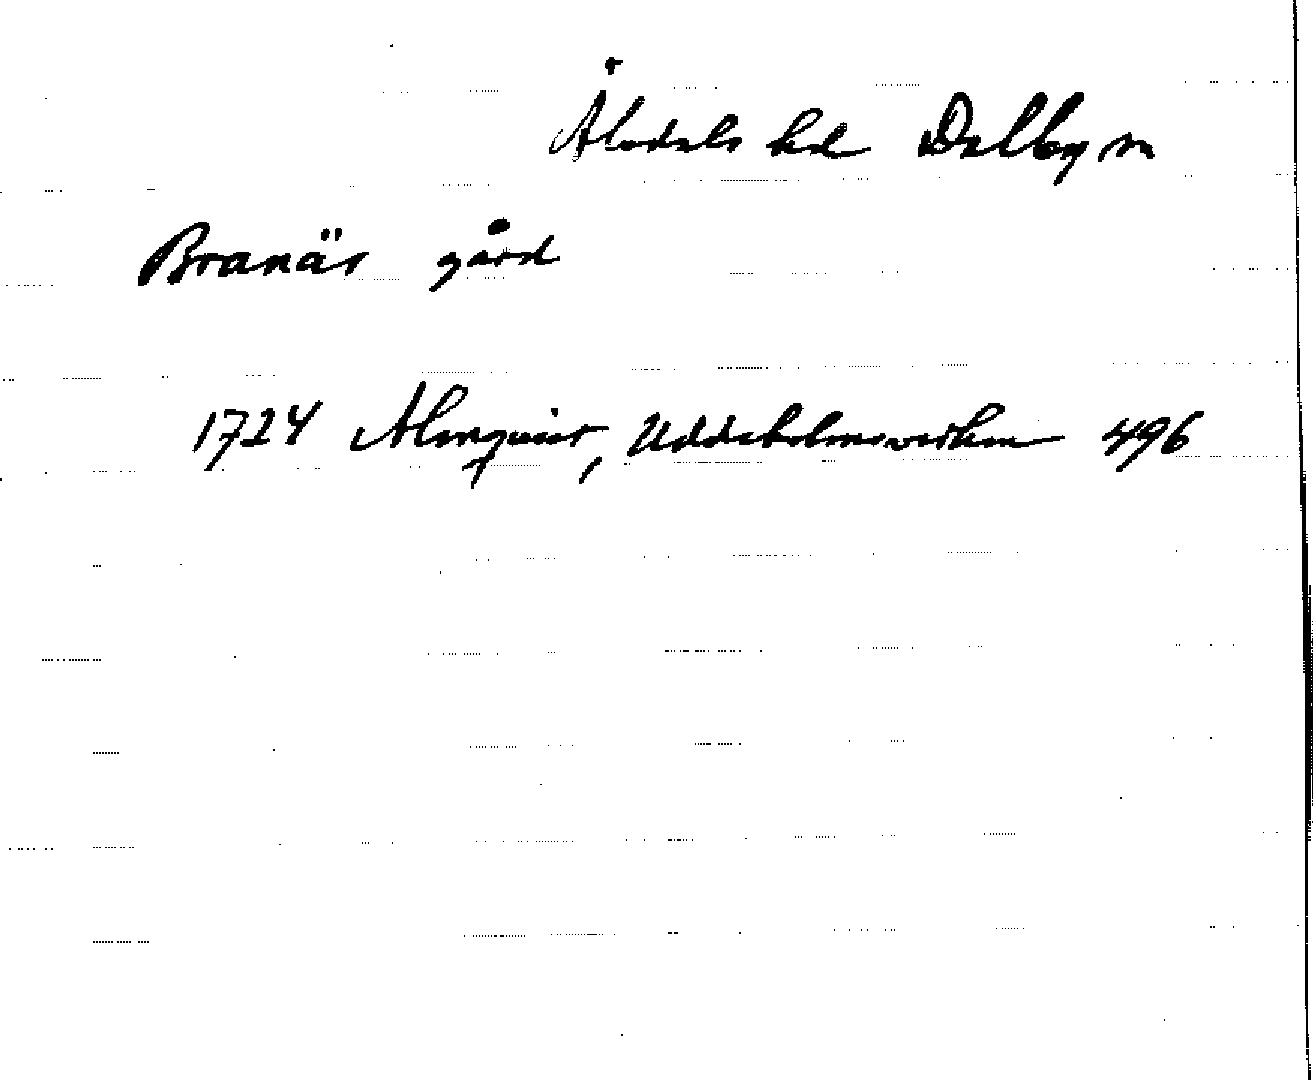 Älvdals hd Dalby sn
Branäs gård
1724 Almquist, Uddeholmsverken 496